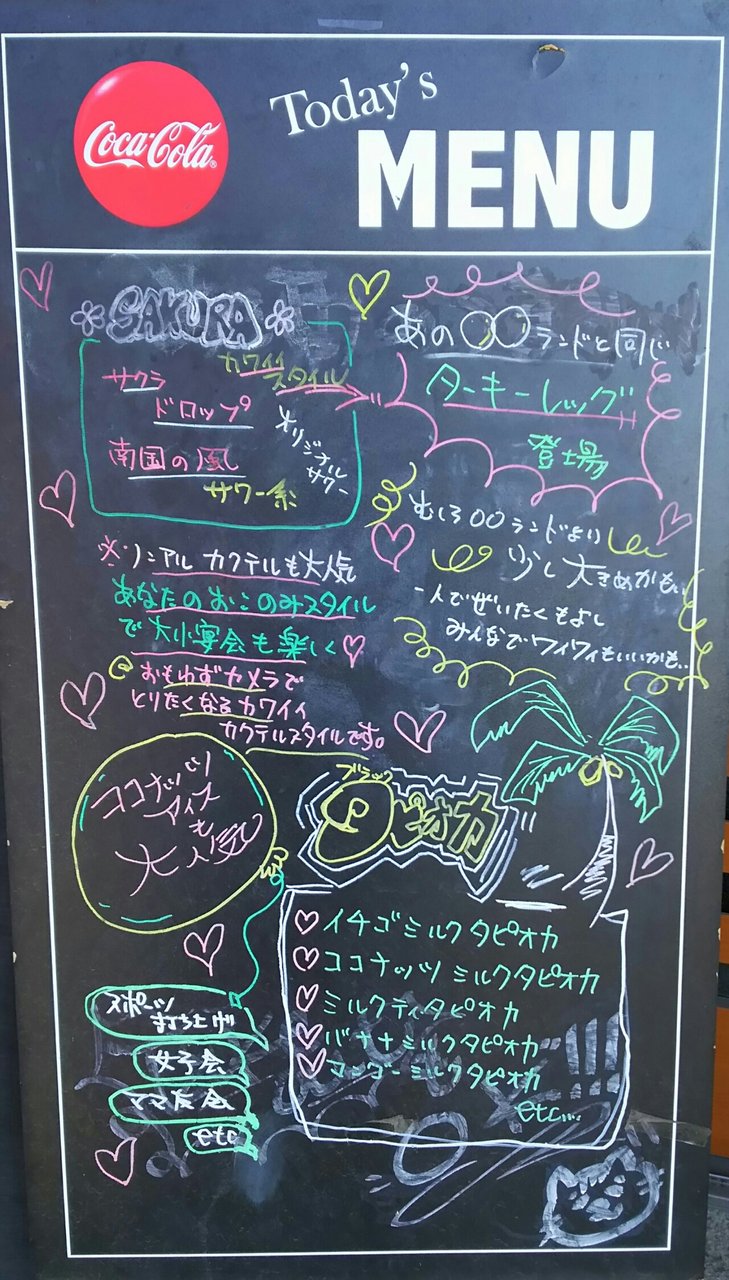 Coca-Cola
Today's
MENU
SAKURA
カワイイ
スタイル
サクラ
ドロップ
オリジナル
サワー
南国の風
サワー系
あの〇〇ランドと同じ
ターキーレッグ!!
登場
むしろ〇〇ランドより
少し大きめかも..
一人でぜいたくもよし
みんなでワイワイもいいかも..
※ノンアルカクテルも大人気
あなたのおこのみスタイル
で大小宴会も楽しく
@おもわずカメラで
とりたくなるカワイイ
カクテルスタイルです。
ココナッツ
アイス
も
大人気
ブラック
タピオカ
イチゴミルクタピオカ
ココナッツミルクタピオカ
ミルクティタピオカ
バナナミルクタピオカ
マンゴーミルクタピオカ
etc...
スポーツ
打ち上げ
女子会
ママ友会
etc